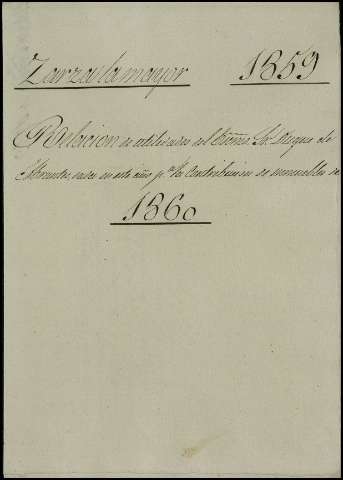 Zarza la mayor 1859
Relacion de utilidades del Exmo. Sr. Duque de
Abrantes, dadas en este año pa. la Contribucion de inmuebles de
1860